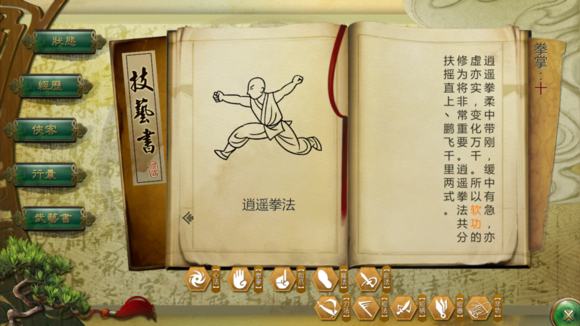 狀態
經歷
俠客
行囊
技藝書
技藝書
逍遥拳法
拳掌:十
逍遥拳柔中带刚,缓中有急,亦
虚亦实,变化万千。所以软功的
修为将非常重要。逍遥拳法共分
扶摇直上、鹏飞千里两式。